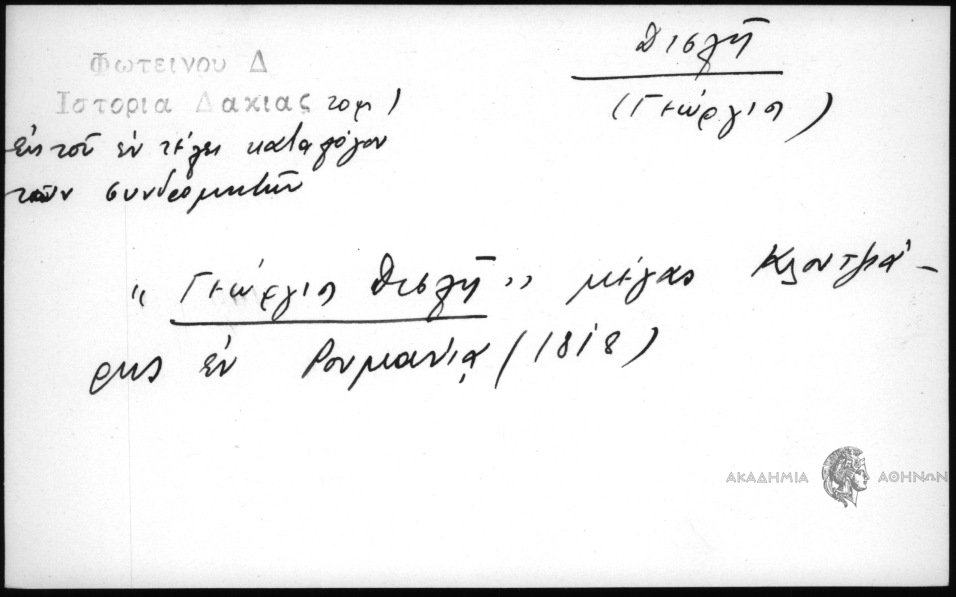 Φωτεινου Δ
Ιστορια Δακιας τομ 1
Εκ τοῦ ἐν τέλει καταλόγου
τῶν συνδρομητῶν
Δισλῆ
(Γεώργιο)
" Γεώργιο Δισλῆ " μέγας Κλουτζιά-
ρης ἐν Ρουμανίᾳ (1818)
ΑΚΑΔΗΜΙΑ ΑΘΗΝΩΝ